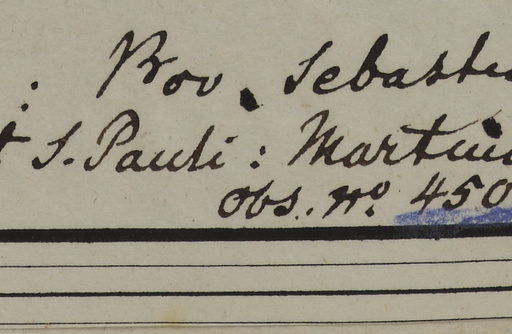 : Prov. Sebasti
t S. Pauli : Martiu
Obs. no. 450